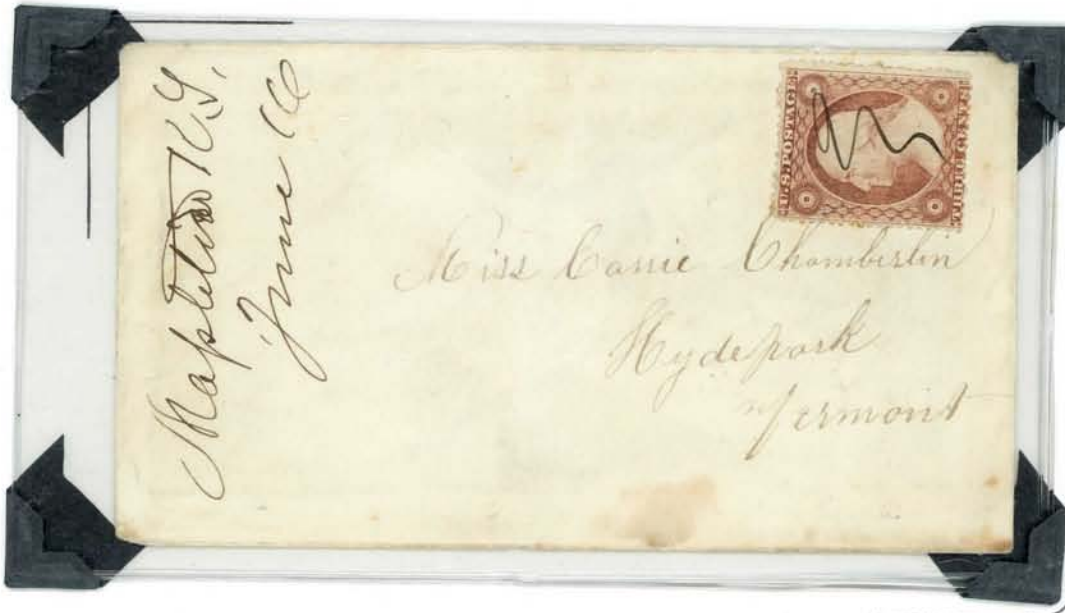 Mapleton K.T.
June 16
U.S. POSTAGE
THREE CENTS
Miss Carrie Chamberlin
Hydepark
Vermont